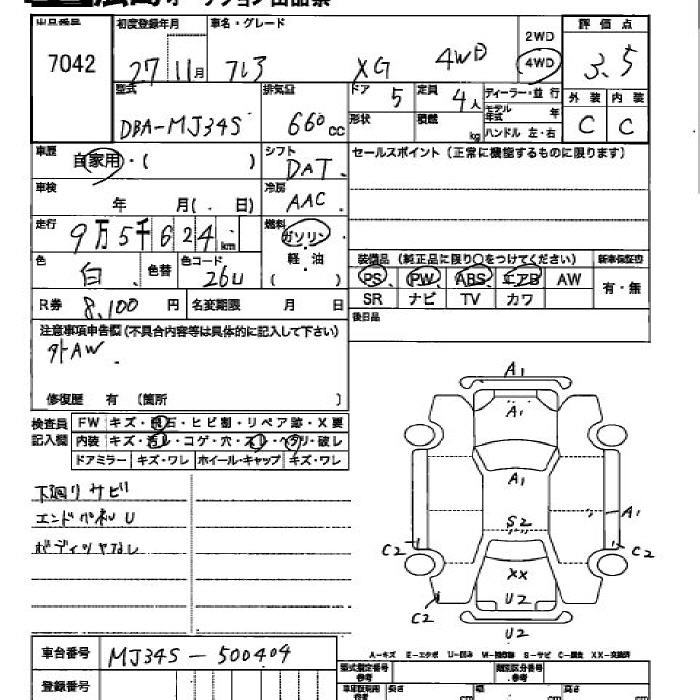 広島オートオークション出品票
出品番号 7042
初度登録年月 27 11月
車名・グレード フレア XG 4WD
2WD 4WD
評価点 3.5
外装 C 内装 C
型式 DBA-MJ34S
排気量 660cc
ドア 5
定員 4人
形状
積載 kg
ディーラー・並行
モデル年式 年
ハンドル 左・右
車歴 自家用・( )
シフト DAT
セールスポイント (正常に機能するものに限ります)
車検 年 月( . 日)
冷房 AAC
走行 9万5千624km
燃料 ガソリン・軽油 ( )
色 白
色替
色コード 26U
装備品 (純正品に限り○をつけてください)
新車保証書 有・無
PS PW ABS エアB AW
SR ナビ TV カワ
R券 8,100円
名変期限 月 日
後日品
注意事項申告欄 (不具合内容等は具体的に記入して下さい)
外AW
修復歴 有 (箇所 )
検査員記入欄
FW キズ・飛石・ヒビ割・リペア跡・X要
内装 キズ・汚レ・コゲ・穴・スレ・ヘタリ・破レ
ドアミラー キズ・ワレ ホイール・キャップ キズ・ワレ
下廻りサビ
エンドパネルU
ボディツヤナシ
A1
A1
A1
S2
A1
C2
C2
XX
U2
C2
U2
A-キズ E-エクボ U-凹み W-補修跡 S-サビ C-腐食 XX-交換済
車台番号 MJ34S-500404
登録番号
型式指定番号 参考
類別区分番号 参考
長さ cm
幅 cm
高さ cm